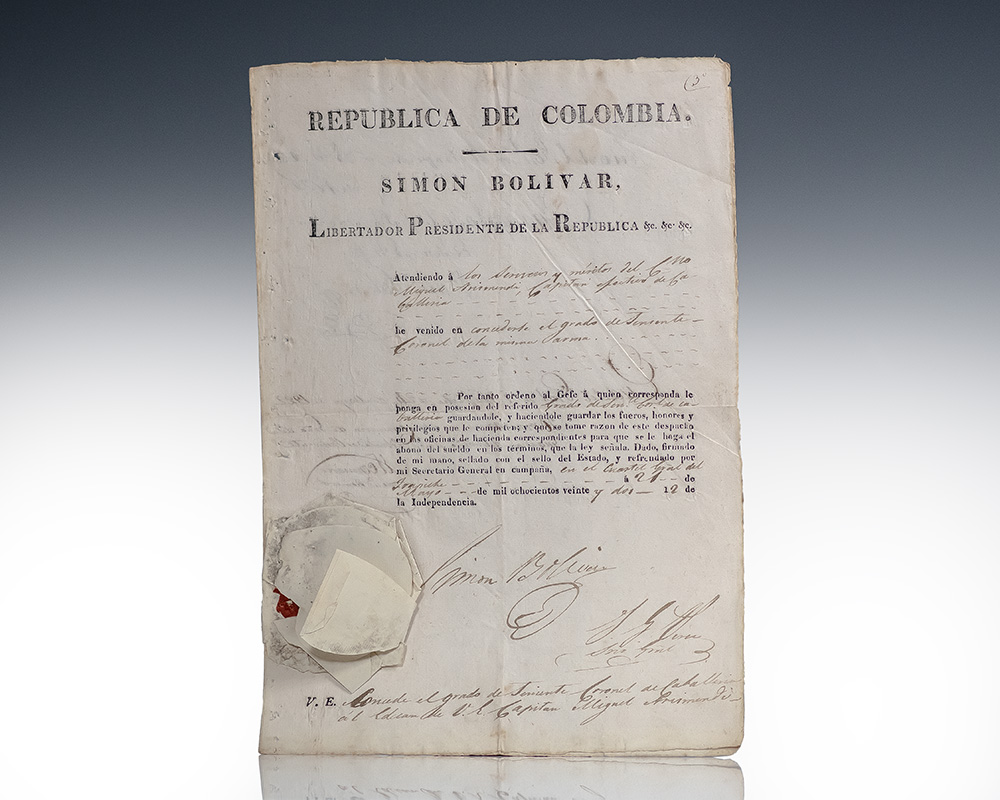 REPUBLICA DE COLOMBIA.
SIMON BOLIVAR,
LIBERTADOR PRESIDENTE DE LA REPUBLICA &c. &c. &c.
Atendiendo á los servicios y méritos del
Miguel Arismendi, Capitan efectivo de Ca
balleria
he venido en concederle el grado de Teniente
Coronel de la misma arma.
Por tanto ordeno al Gefe á quien corresponda le
ponga en posesion del referido grado de Ten.
balleria guardandole, y haciendole guardar los fueros, honores y
privilegios que le competen; y que se tome razon de este despacho
en las oficinas de hacienda correspondientes para que se le haga el
abono del sueldo en los términos, que la ley señala. Dado, firmado
de mi mano, sellado con el sello del Estado, y refrendado por
mi Secretario General en campaña, en el Cuartel Gral del
á 21 de
Mayo de mil ochocientos veinte y dos 12 de
la Independencia.
Simon Bolivar
V. E. Concede el grado de Teniente Coronel de Caballeria
al Edecan de V.E Capitan Miguel Arismendi